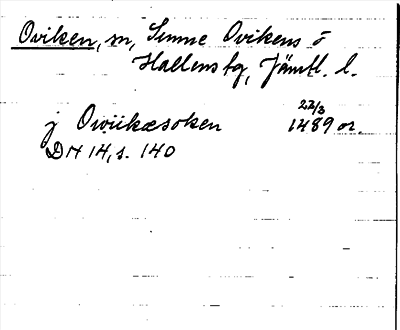 Oviken, m, Sunne Ovikens o
Hallens tg, Jämtl. l.
22/3
j Owiikæsoken 1489 or.
DN 14, s. 140